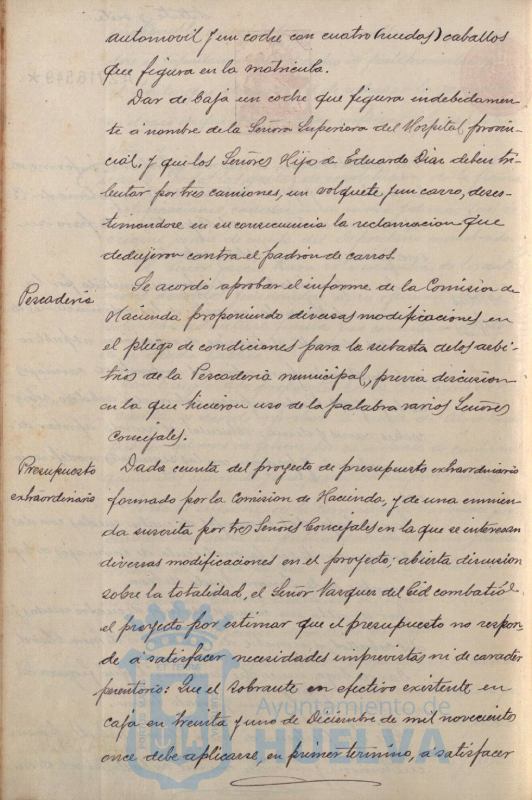 automovil y un coche con cuatro (ruedas) caballos
que figura en la matricula.
Dar de baja un coche que figura indebidamen-
te á nombre de la Señora Superiora del Hospital provin-
cial, y que los Señores Hijos de Eduardo Diaz deben tri-
butar por tres camiones, un volquete y un carro, deses-
timandose en su consecuencia la reclamacion que
dedujeron contra el padron de carros.
Pescaderia
Se acordó aprobar el informe de la Comision de
Hacienda proponiendo diversas modificaciones en
el pliego de condiciones para la subasta de los arbi-
trios de la Pescaderia municipal, previa discusion
en la que hicieron uso de la palabra varios Señores
Concejales.
Presupuesto
extraordinario
Dada cuenta del proyecto de presupuesto extraordinario
formado por la Comision de Hacienda, y de una enmien-
da suscrita por tres Señores Concejales en la que se interesan
diversas modificaciones en el proyecto; abierta discusion
sobre la totalidad, el Señor Vazquez del Cid combatió
el proyecto por estimar que el presupuesto no respon-
de á satisfacer necesidades imprevistas ni de caracter
perentorio: Que el sobrante en efectivo existente en
caja en treinta y uno de Diciembre de mil novecientos
once debe aplicarse, en primer termino, á satisfacer
Ayuntamiento de
HUELVA